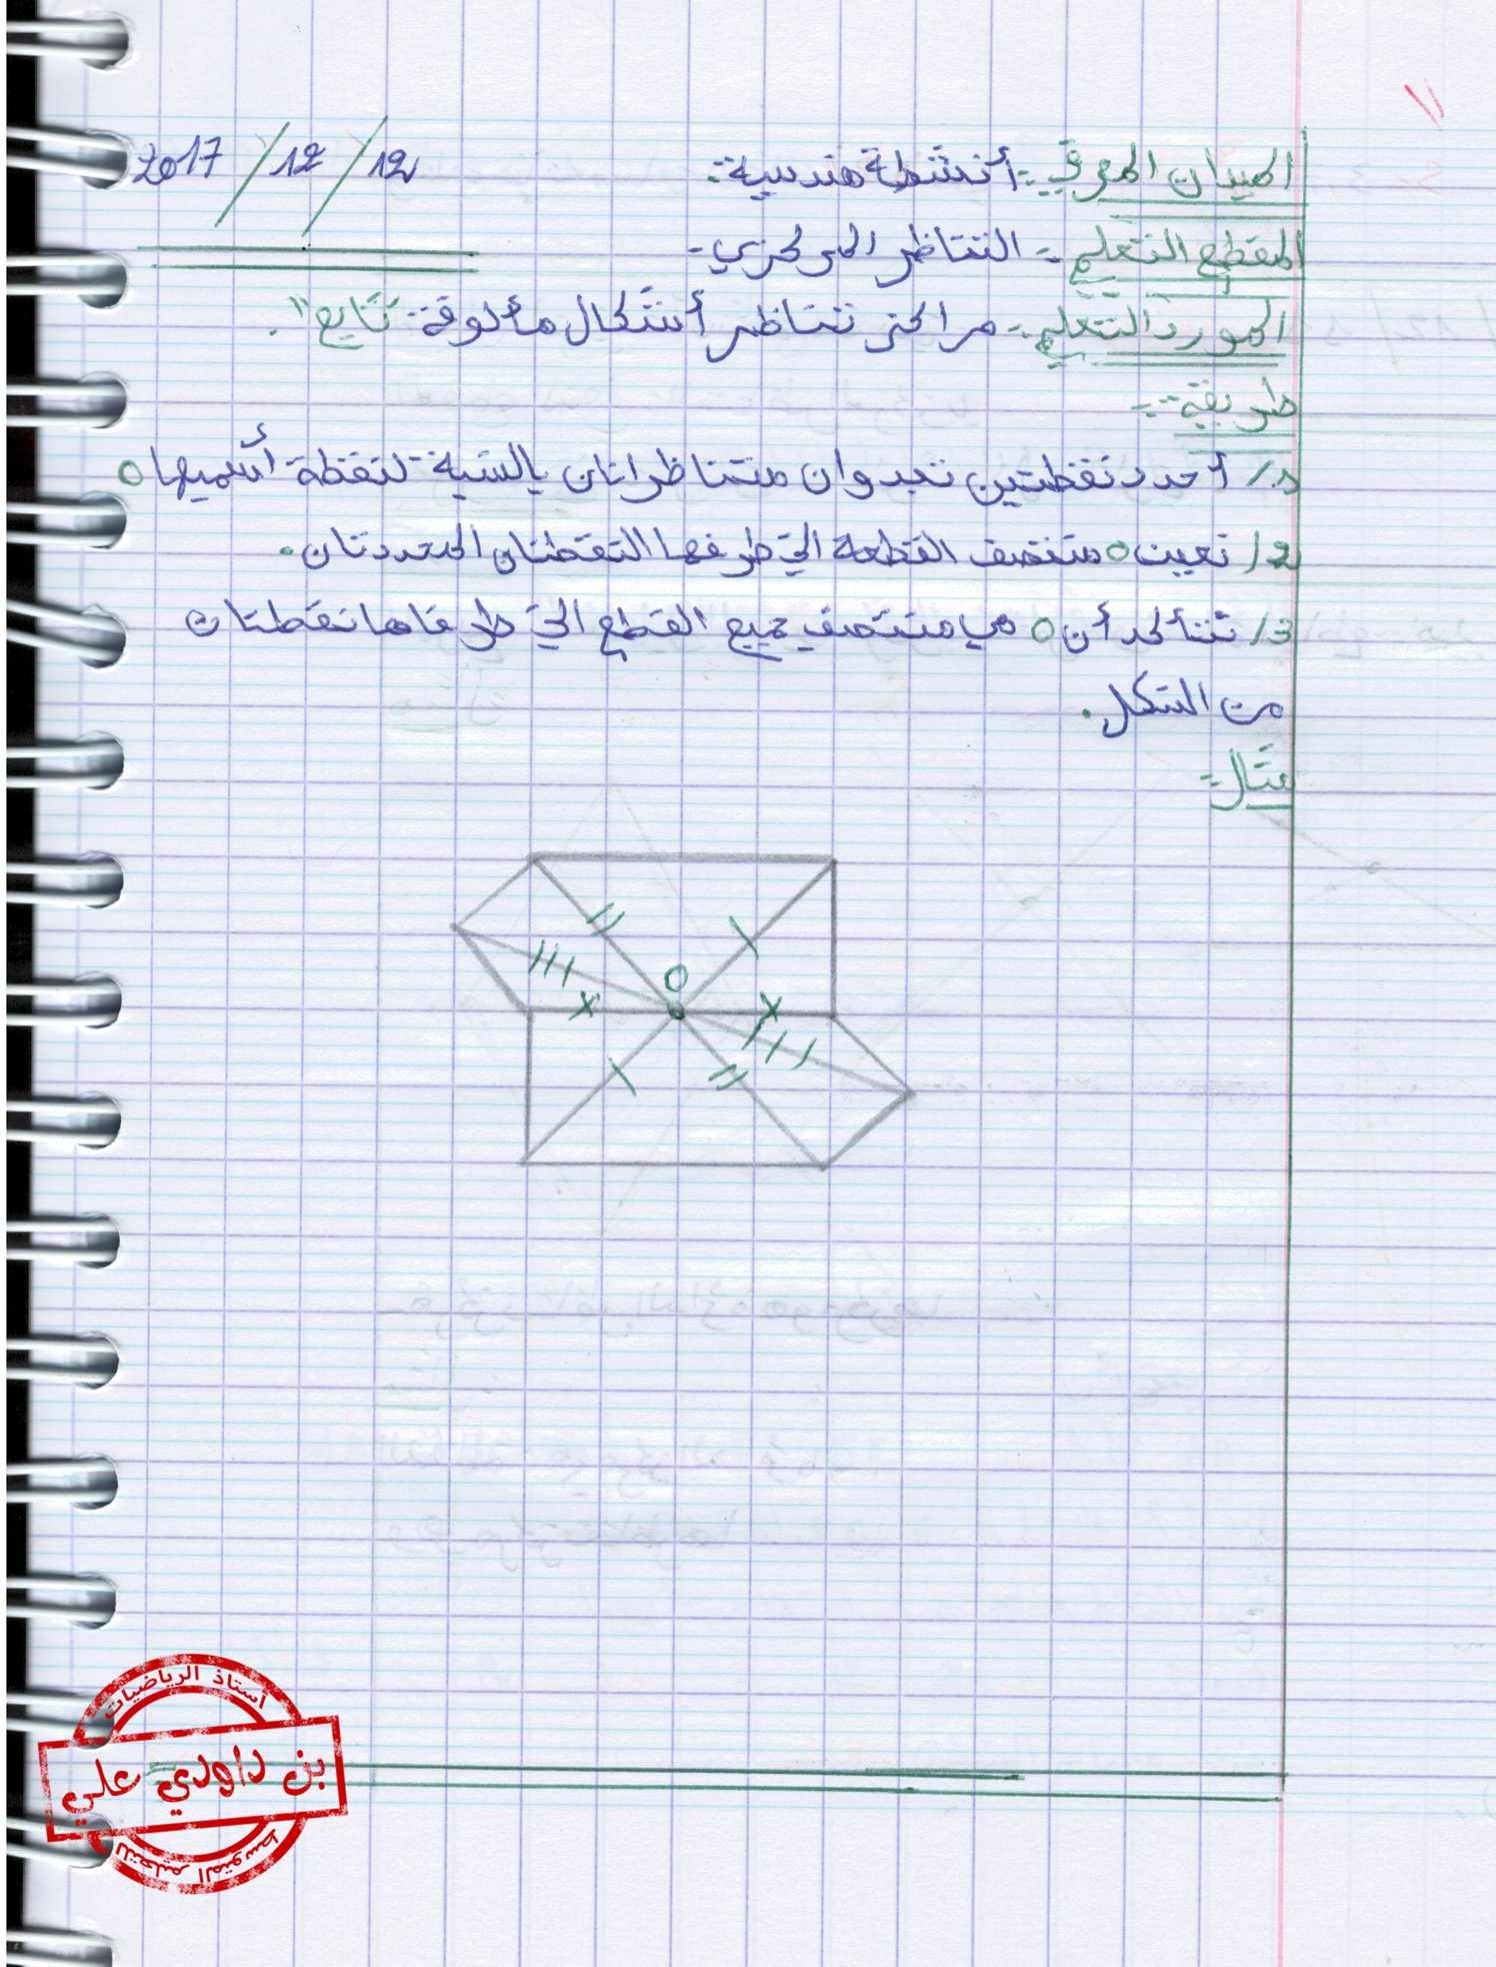 الميدان المعرفي: أنشطة هندسية. 12/12/2017
المقطع التعلمي: التناظر المركزي.
المورد التعلمي: مراكز تناظر أشكال مألوفة "تابع".
طريقة:
1/ أحدد نقطتين تبدوان متناظراتان بالنسبة لنقطة أسميها O
2/ نعين O منتصف القطعة التي طرفها النقطتان المحددتان.
3/ نتأكد أن O هي منتصف جميع القطع التي طرفاها نقطتان
من الشكل.
مثال:
O
أستاذ الرياضيات
بن داودي علي
للتعليم المتوسط